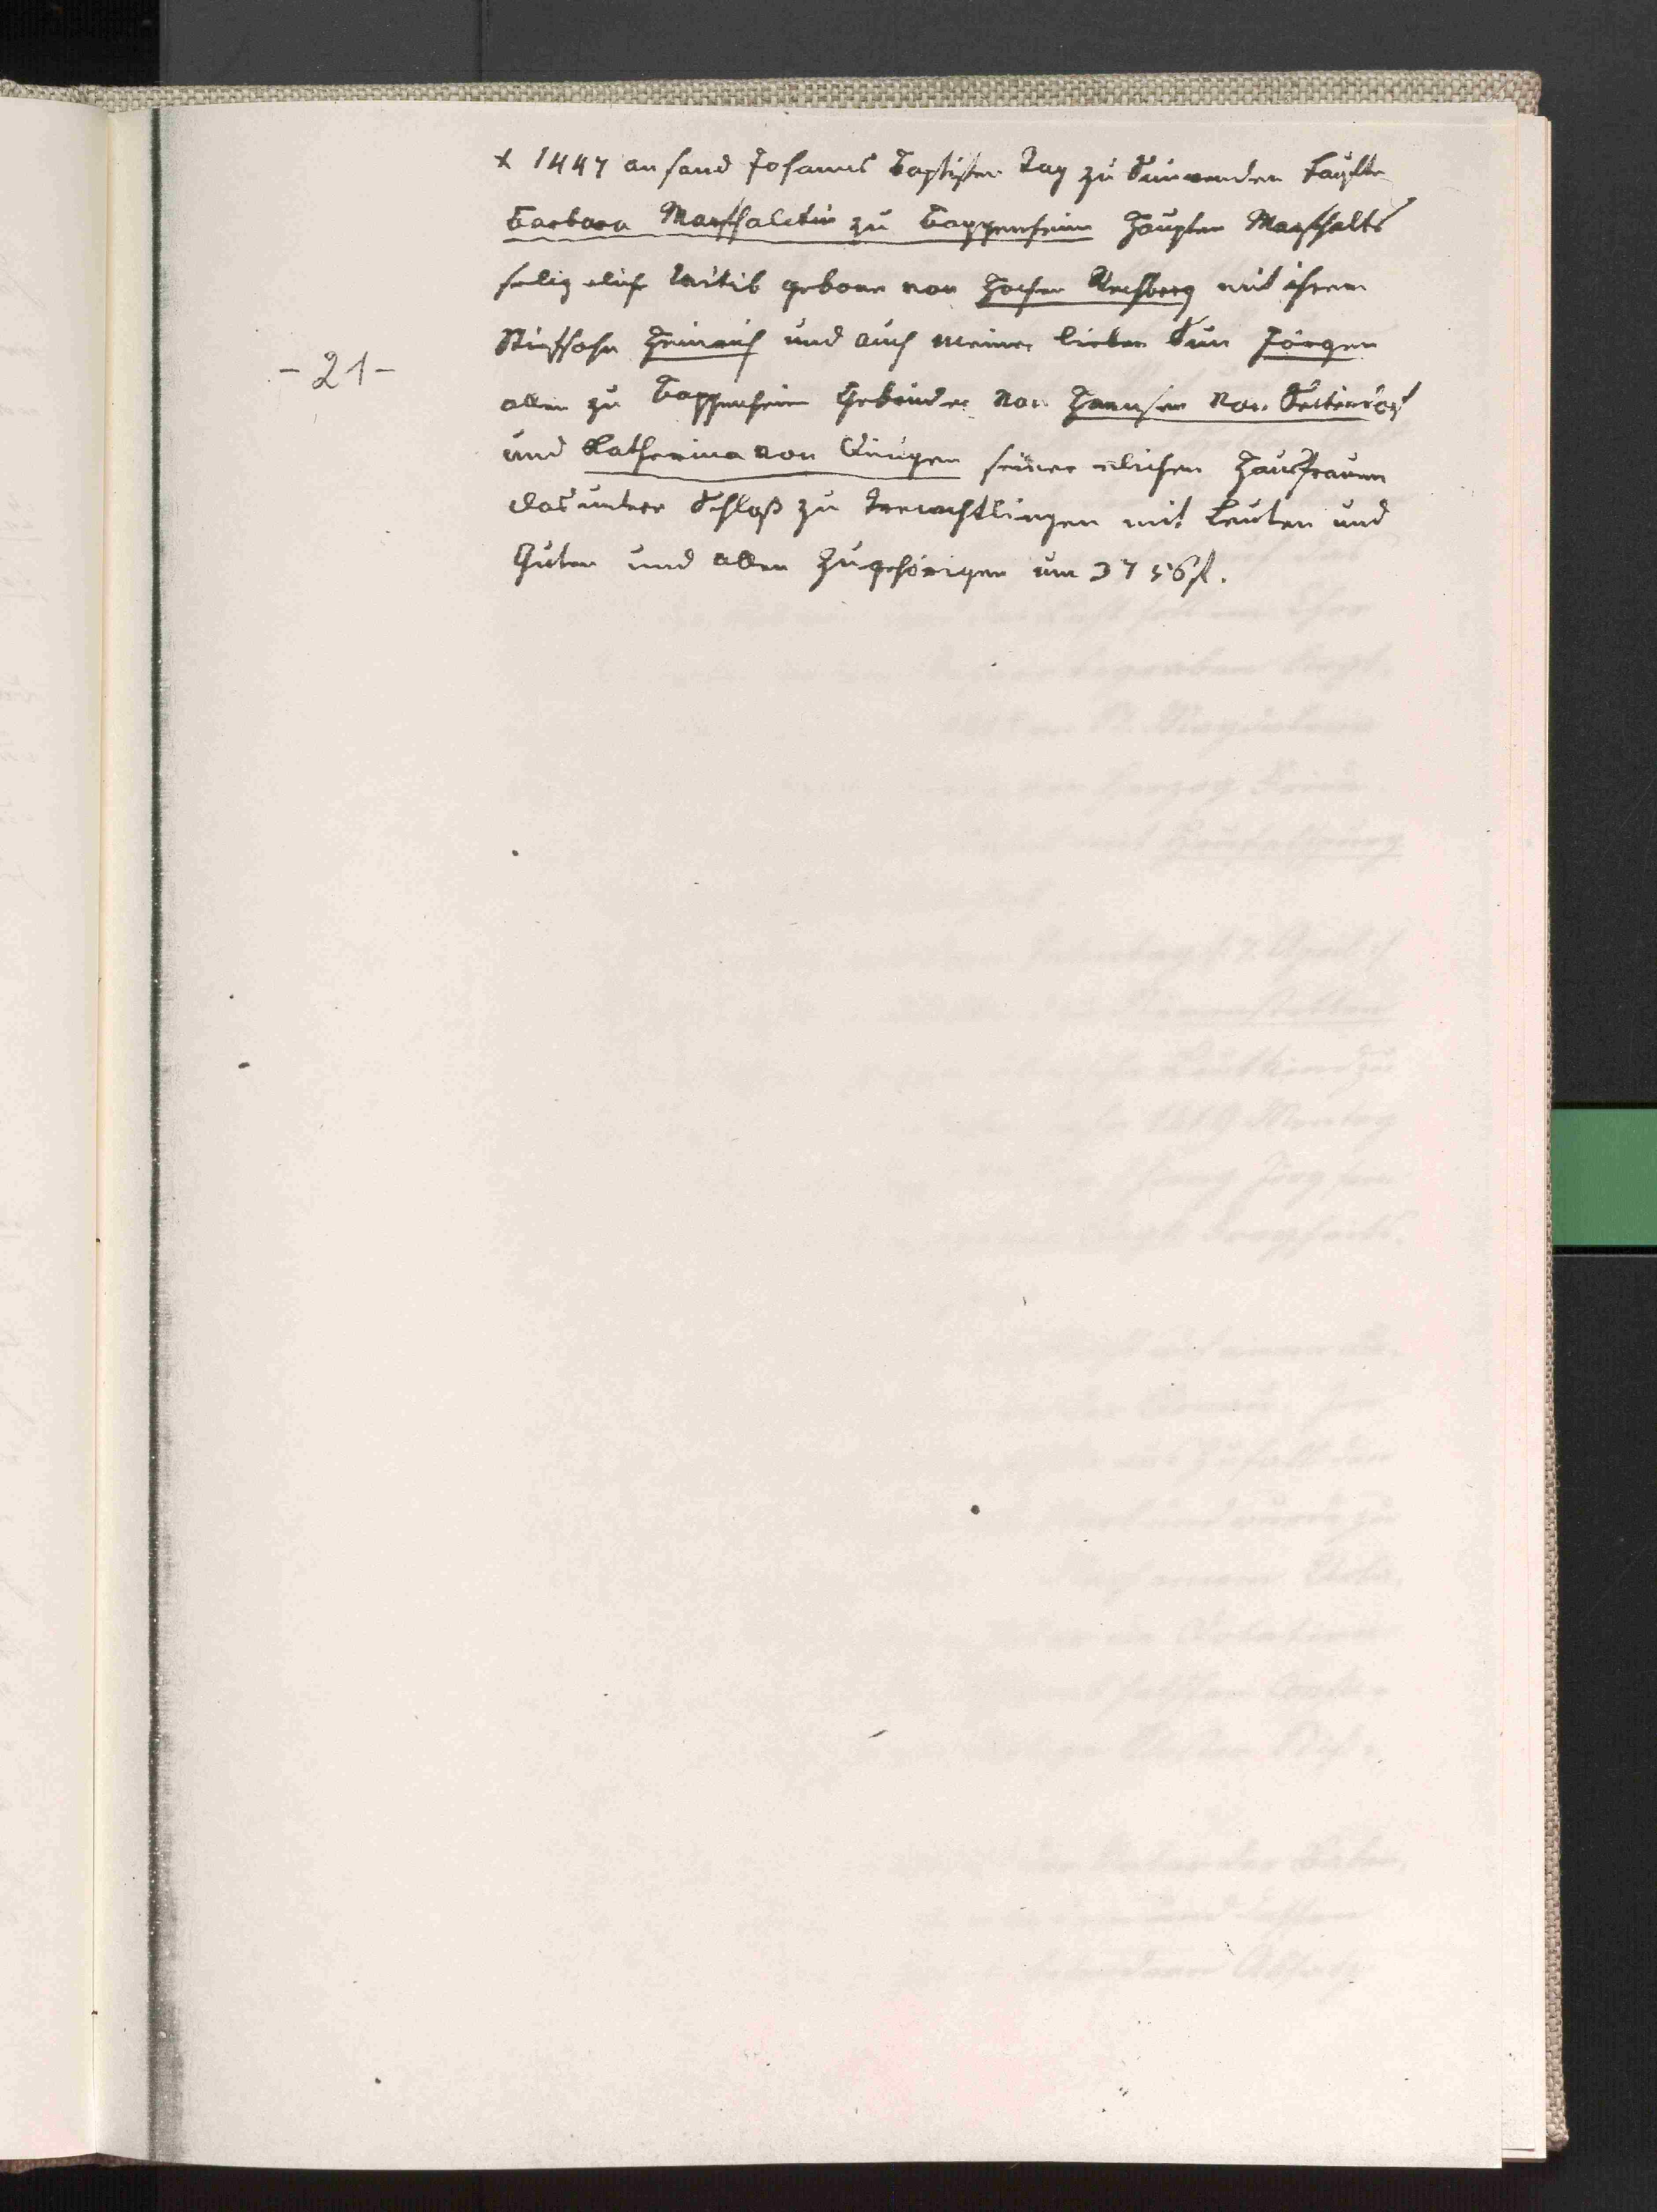 x 1447 an sand Johanns Baptisten Tag zu Sunwenden kauffte
Barbara Marschalckin zu Bappenheim Haupten Marschalks
selig elich Witib geborn von Hohen Rechberg mit ihrem
Stiefsohn Heinrich und auch meiner lieben Sun Jörgen
allen zu Bappenheim Gebrüder von Hannsen von Seckendorf
-21-
und Katherina von seiner elichen Hausfrauen
das unter Schloß zu Treuchtlingen mit Leuten und
Guten und allen Zugehörigen um 3756 fl.